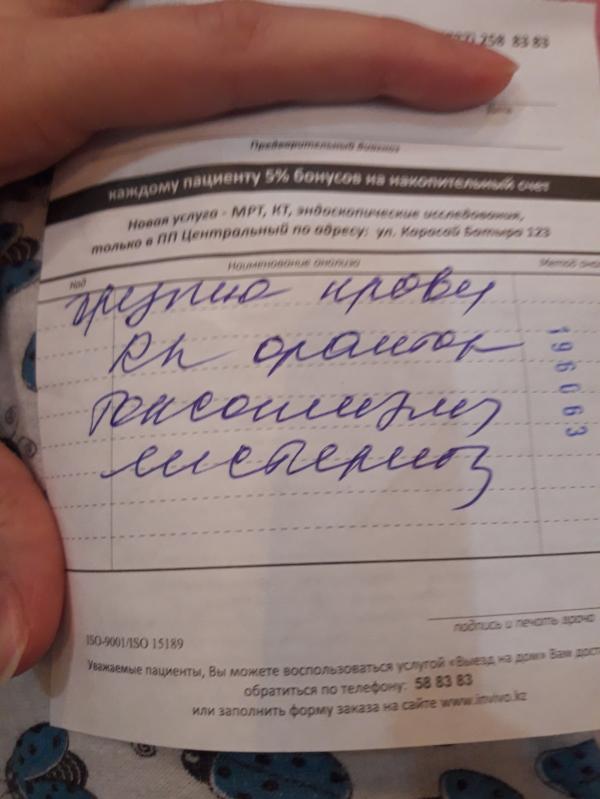 258 83 83
Дата
Предварительный диагноз
каждому пациенту 5% бонусов на накопительный счет
Новая услуга - МРТ, КТ, эндоскопические исследования,
только в ПП Центральный по адресу: ул. Карасай Батыра 123
Код Наименование анализа Метод
группа крови
Rh фактор
токсоплазмоз
листериоз
196063
подпись и печать врача
ISO-9001/ISO 15189
Уважаемые пациенты, Вы можете воспользоваться услугой «Выезд на дом» Вам
обратиться по телефону: 58 83 83
или заполнить форму заказа на сайте www.invivo.kz